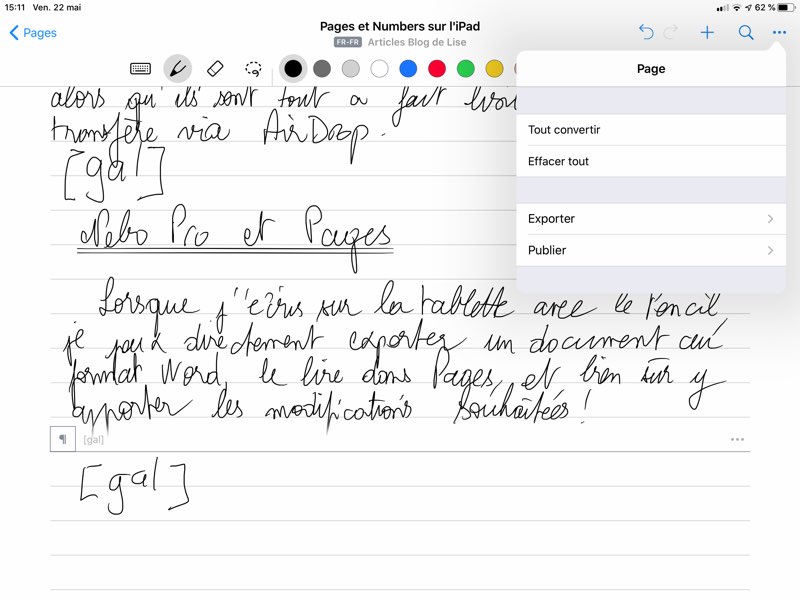 15:11 Ven. 22 mai 62 %
Pages
Pages et Numbers sur l'iPad
FR-FR Articles Blog de Lise
Page
Tout convertir
Effacer tout
Exporter
Publier
alors qu'ils sont tout a fait
transfère via AirDrop.
[gal]
Nebo Pro et Pages
Lorsque j'écris sur la tablette avec le Pencil,
je peux directement exporter un document au
format Word, le lire dans Pages, et bien sûr y
apporter les modifications souhaitées !
¶ [gal]
[gal]